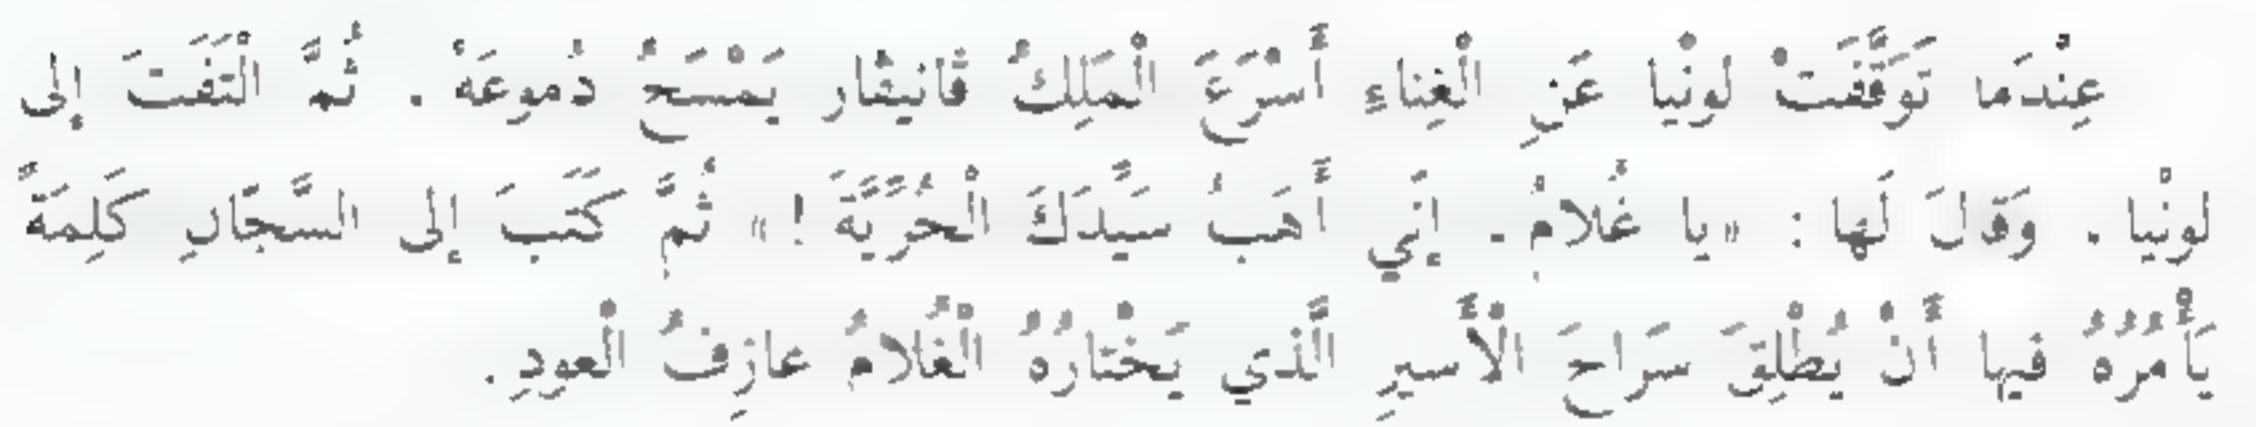 عِنْدَما تَوَقَّفَتْ لونْيا عَنِ الْغِناءِ أَسْرَعَ الْمَلِكُ ڤانيڤار يَمْسَحُ دُموعَهُ . ثُمَّ الْتَفَتَ إلى
لونْيا . وَقالَ لَها : « يا غُلامُ . إنّي أَهَبُ سَيِّدَكَ الْحُرِّيَّةَ ! » ثُمَّ كَتَبَ إلى السَّجّانِ كَلِمَةً
يَأْمُرُهُ فيها أَنْ يُطْلِقَ سَراحَ الْأَسيرِ الَّذي يَخْتارُهُ الْغُلامُ عازِفُ الْعودِ .